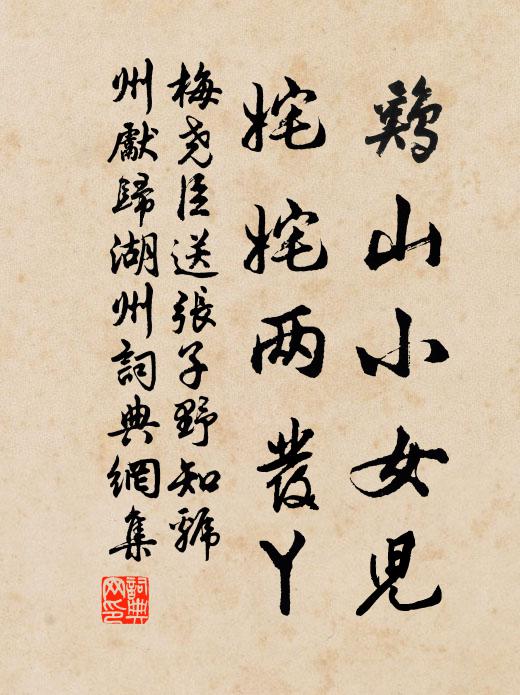 鷄山小女兒
姹姹两發丫
梅尧臣送張子野知虢
州獻歸湖州詞典網集
詞典
网印